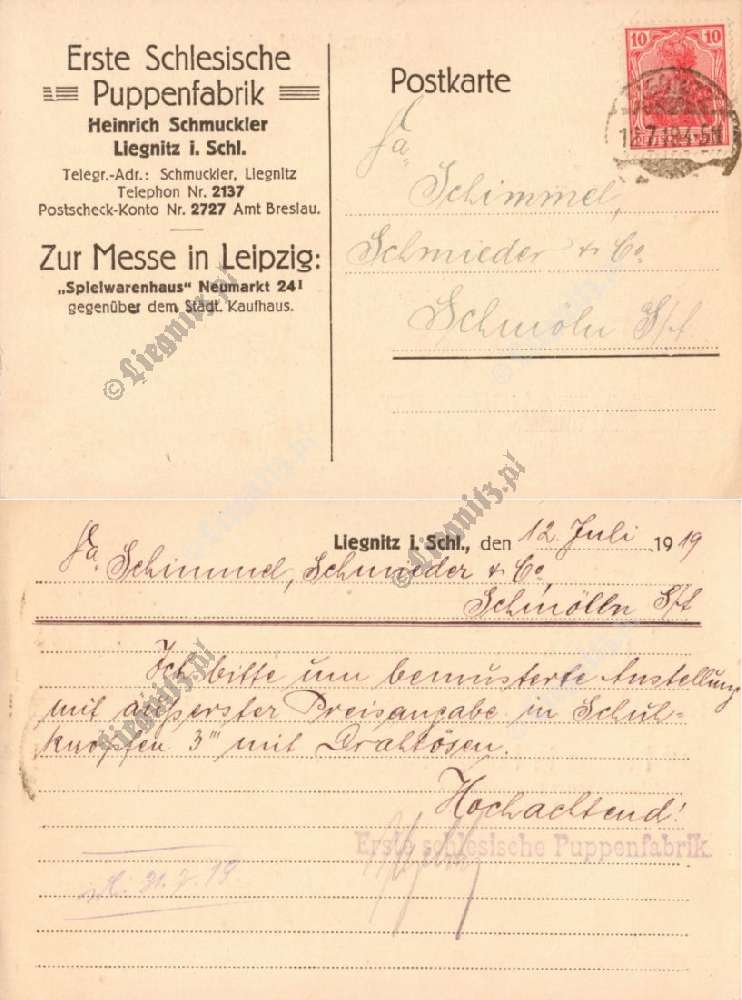 Erste Schlesische
Puppenfabrik
Heinrich Schmuckler
Liegnitz i. Schl.
Telegr.-Adr.: Schmuckler, Liegnitz
Telephon Nr. 2137
Postscheck-Konto Nr. 2727 Amt Breslau.
Zur Messe in Leipzig:
„Spielwarenhaus" Neumarkt 24 I
gegenüber dem Städt. Kaufhaus.
Postkarte
10 10
Fa.
Schimmel,
Schmieder & Co
Schmölln S/A
© Liegnitz.pl
Liegnitz.pl
Liegnitz i. Schl., den 12. Juli 1919
Fa. Schimmel, Schmieder & Co,
Schmölln S/A
Ich bitte um bemusterte Anstellung
mit äußerster Preisangabe in Schuh-
knöpfen 3''' mit Drahtösen.
Hochachtend!
Erste schlesische Puppenfabrik.
31.7.19.
© Liegnitz.pl
Liegnitz.pl